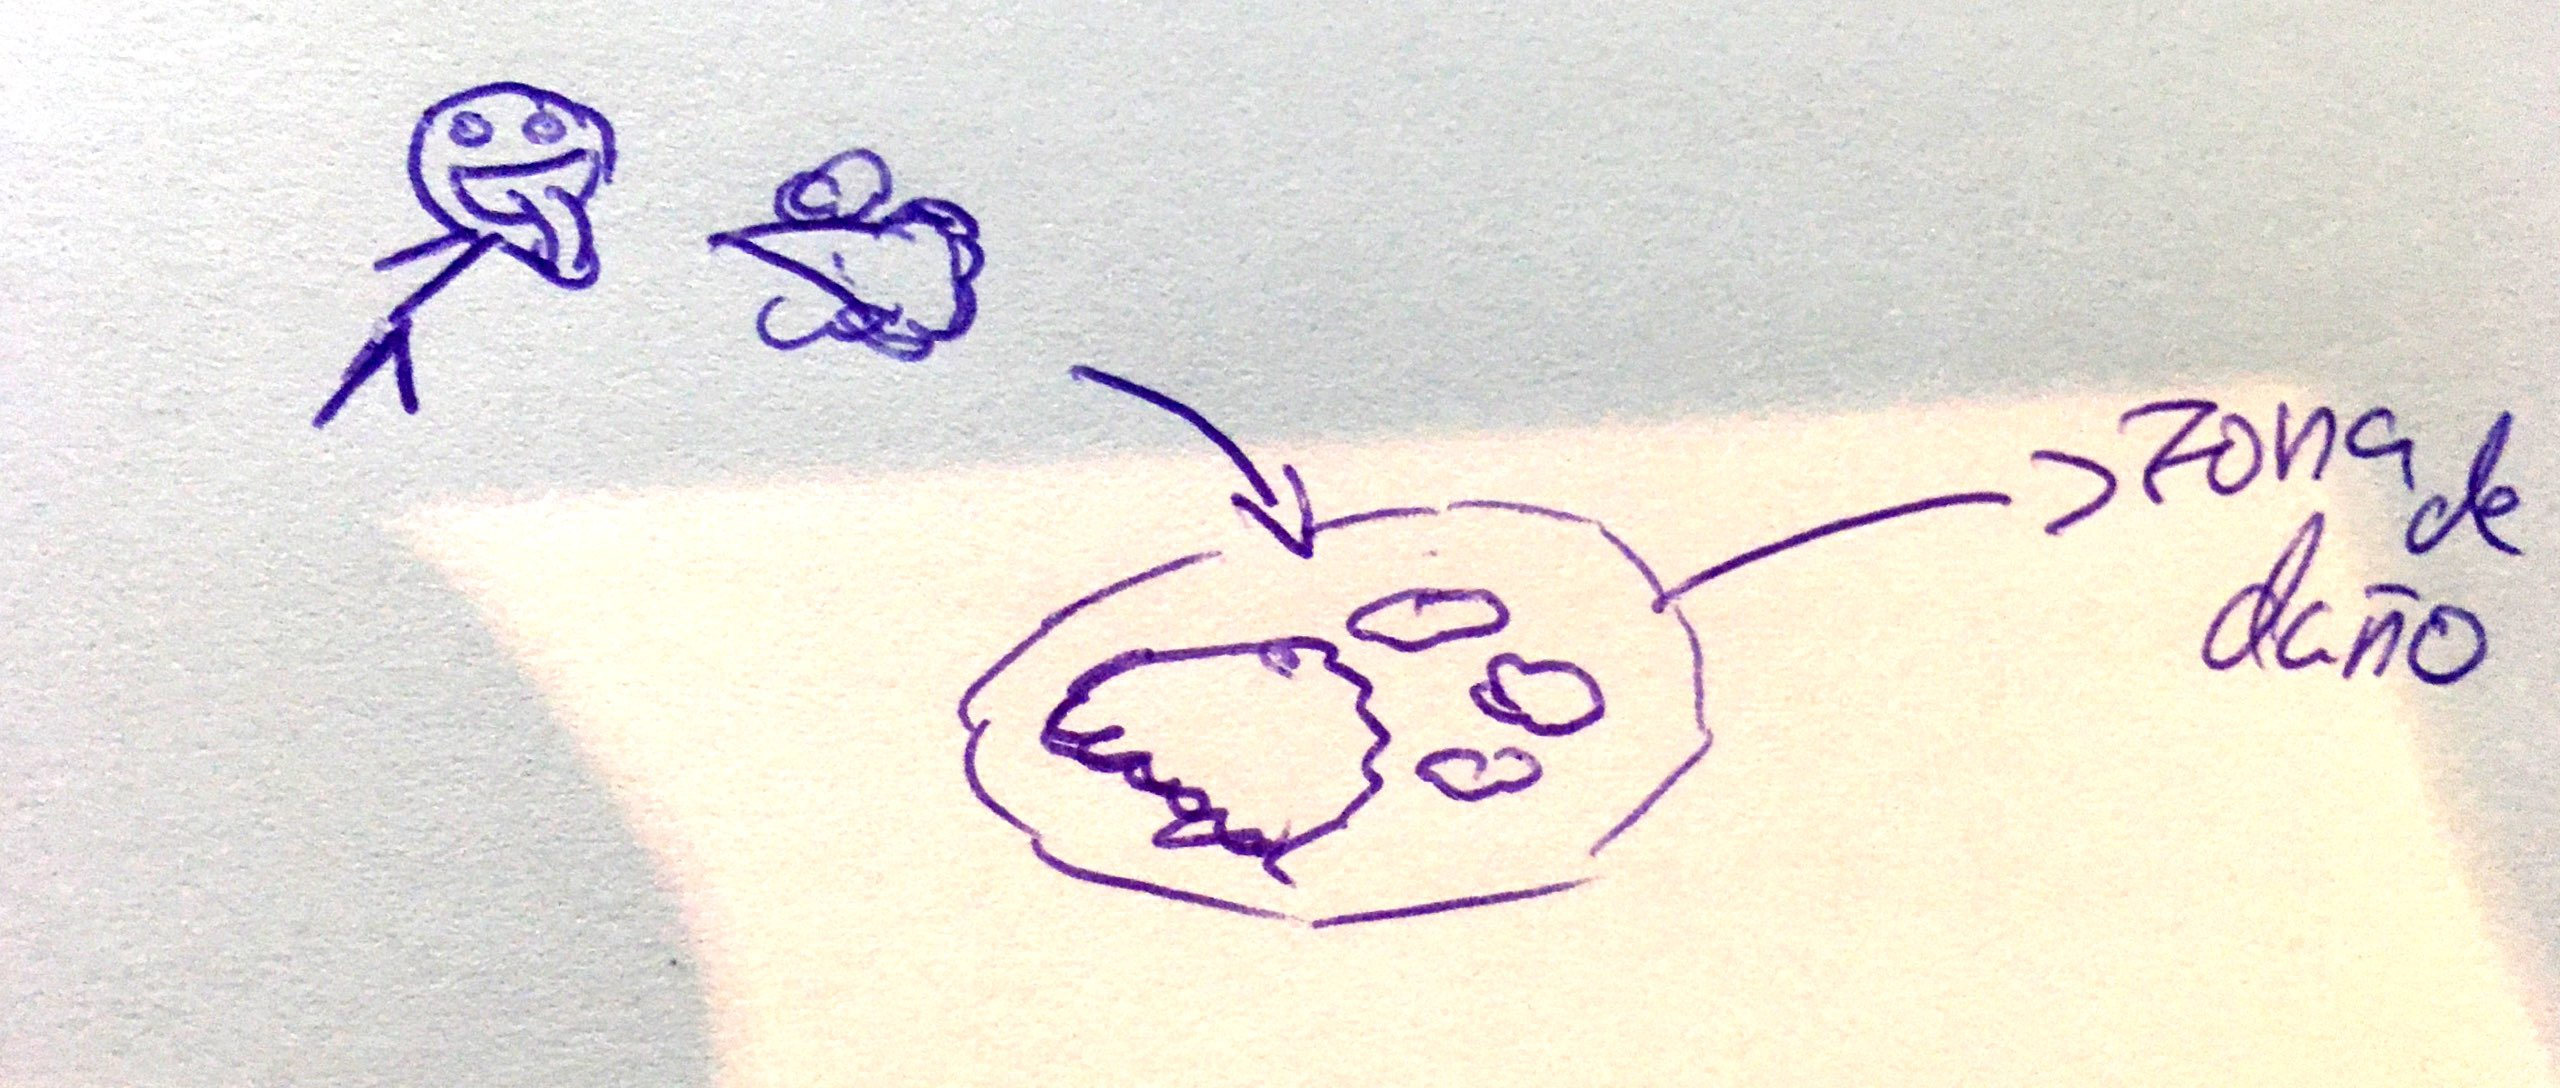 zona
de
daño